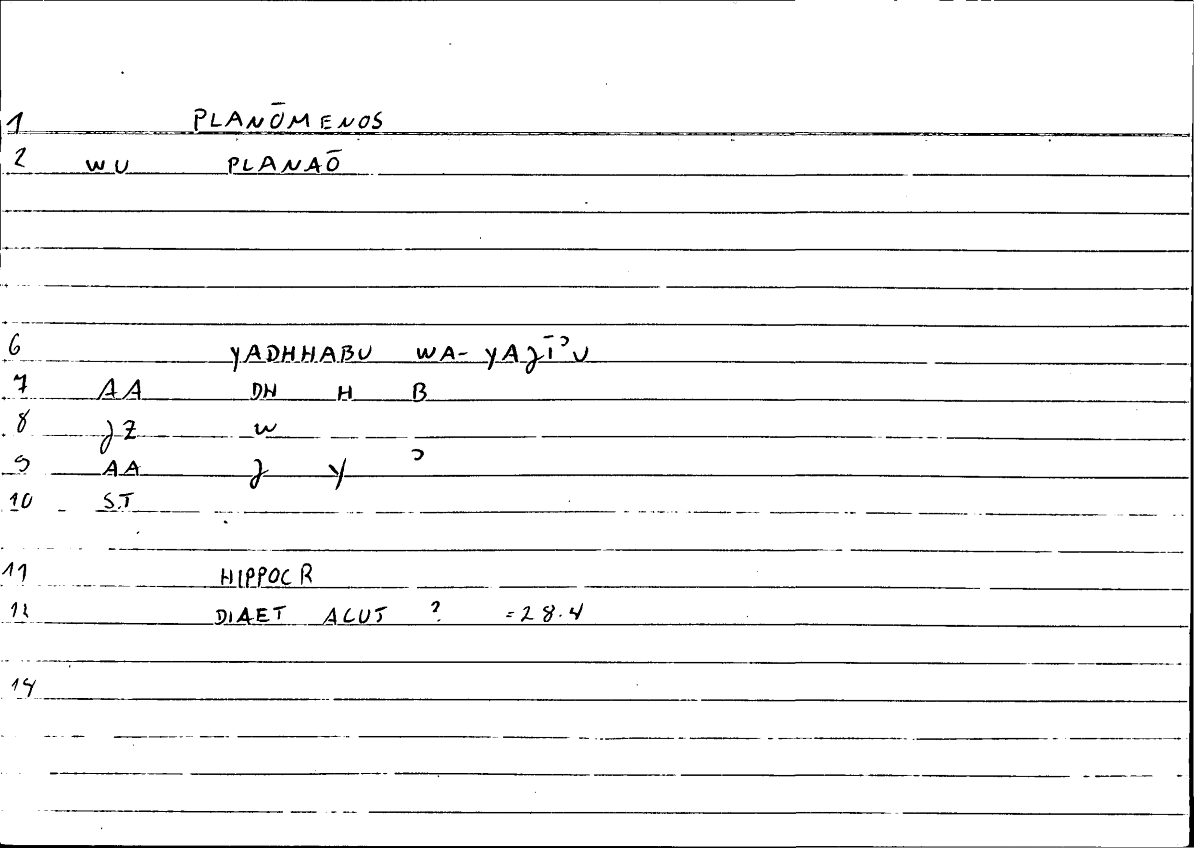 1 PLANŌMENOS
2 WU PLANAŌ
6 YADHHABU WA- YAJĪʾU
7 AA DH H B
8 JZ W
9 AA J Y ʾ
10 ST
11 HIPPOCR
12 DIAET ACUT ? =28.4
14